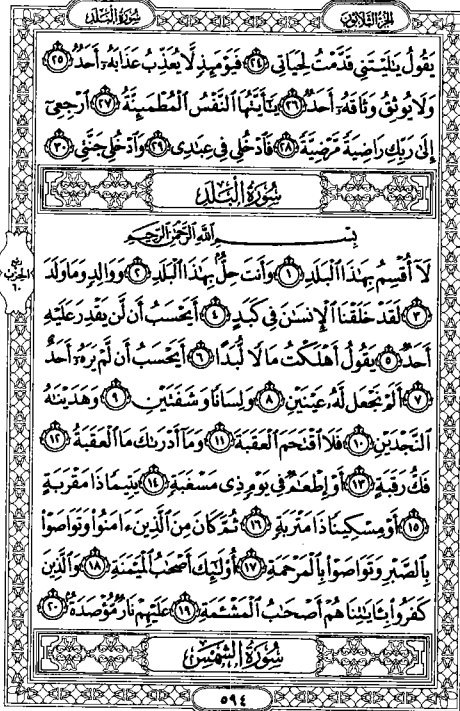 سُورَةُ البَلَدِ
الجُزءُ الثَّلَاثُونَ
يَقُولُ يَٰلَيۡتَنِي قَدَّمۡتُ لِحَيَاتِي ٢٤ فَيَوۡمَئِذٖ لَّا يُعَذِّبُ عَذَابَهُۥٓ أَحَدٞ ٢٥
وَلَا يُوثِقُ وَثَاقَهُۥٓ أَحَدٞ ٢٦ يَٰٓأَيَّتُهَا ٱلنَّفۡسُ ٱلۡمُطۡمَئِنَّةُ ٢٧ ٱرۡجِعِيٓ
إِلَىٰ رَبِّكِ رَاضِيَةٗ مَّرۡضِيَّةٗ ٢٨ فَٱدۡخُلِي فِي عِبَٰدِي ٢٩ وَٱدۡخُلِي جَنَّتِي ٣٠
سُورَةُ الْبَلَدِ
بِسۡمِ ٱللَّهِ ٱلرَّحۡمَٰنِ ٱلرَّحِيمِ
لَآ أُقۡسِمُ بِهَٰذَا ٱلۡبَلَدِ ١ وَأَنتَ حِلُّۢ بِهَٰذَا ٱلۡبَلَدِ ٢ وَوَالِدٖ وَمَا وَلَدَ
٣ لَقَدۡ خَلَقۡنَا ٱلۡإِنسَٰنَ فِي كَبَدٍ ٤ أَيَحۡسَبُ أَن لَّن يَقۡدِرَ عَلَيۡهِ
أَحَدٞ ٥ يَقُولُ أَهۡلَكۡتُ مَالٗا لُّبَدًا ٦ أَيَحۡسَبُ أَن لَّمۡ يَرَهُۥٓ أَحَدٌ
٧ أَلَمۡ نَجۡعَل لَّهُۥ عَيۡنَيۡنِ ٨ وَلِسَانٗا وَشَفَتَيۡنِ ٩ وَهَدَيۡنَٰهُ
ٱلنَّجۡدَيۡنِ ١٠ فَلَا ٱقۡتَحَمَ ٱلۡعَقَبَةَ ١١ وَمَآ أَدۡرَىٰكَ مَا ٱلۡعَقَبَةُ ١٢
فَكُّ رَقَبَةٍ ١٣ أَوۡ إِطۡعَٰمٞ فِي يَوۡمٖ ذِي مَسۡغَبَةٖ ١٤ يَتِيمٗا ذَا مَقۡرَبَةٍ
١٥ أَوۡ مِسۡكِينٗا ذَا مَتۡرَبَةٖ ١٦ ثُمَّ كَانَ مِنَ ٱلَّذِينَ ءَامَنُواْ وَتَوَاصَوۡاْ
بِٱلصَّبۡرِ وَتَوَاصَوۡاْ بِٱلۡمَرۡحَمَةِ ١٧ أُوْلَٰٓئِكَ أَصۡحَٰبُ ٱلۡمَيۡمَنَةِ ١٨ وَٱلَّذِينَ
كَفَرُواْ بِـَٔايَٰتِنَا هُمۡ أَصۡحَٰبُ ٱلۡمَشۡـَٔمَةِ ١٩ عَلَيۡهِمۡ نَارٞ مُّؤۡصَدَةُۢ ٢٠
سُورَةُ الشَّمْسِ
ربع
الحزب
٦٠
٥٩٤